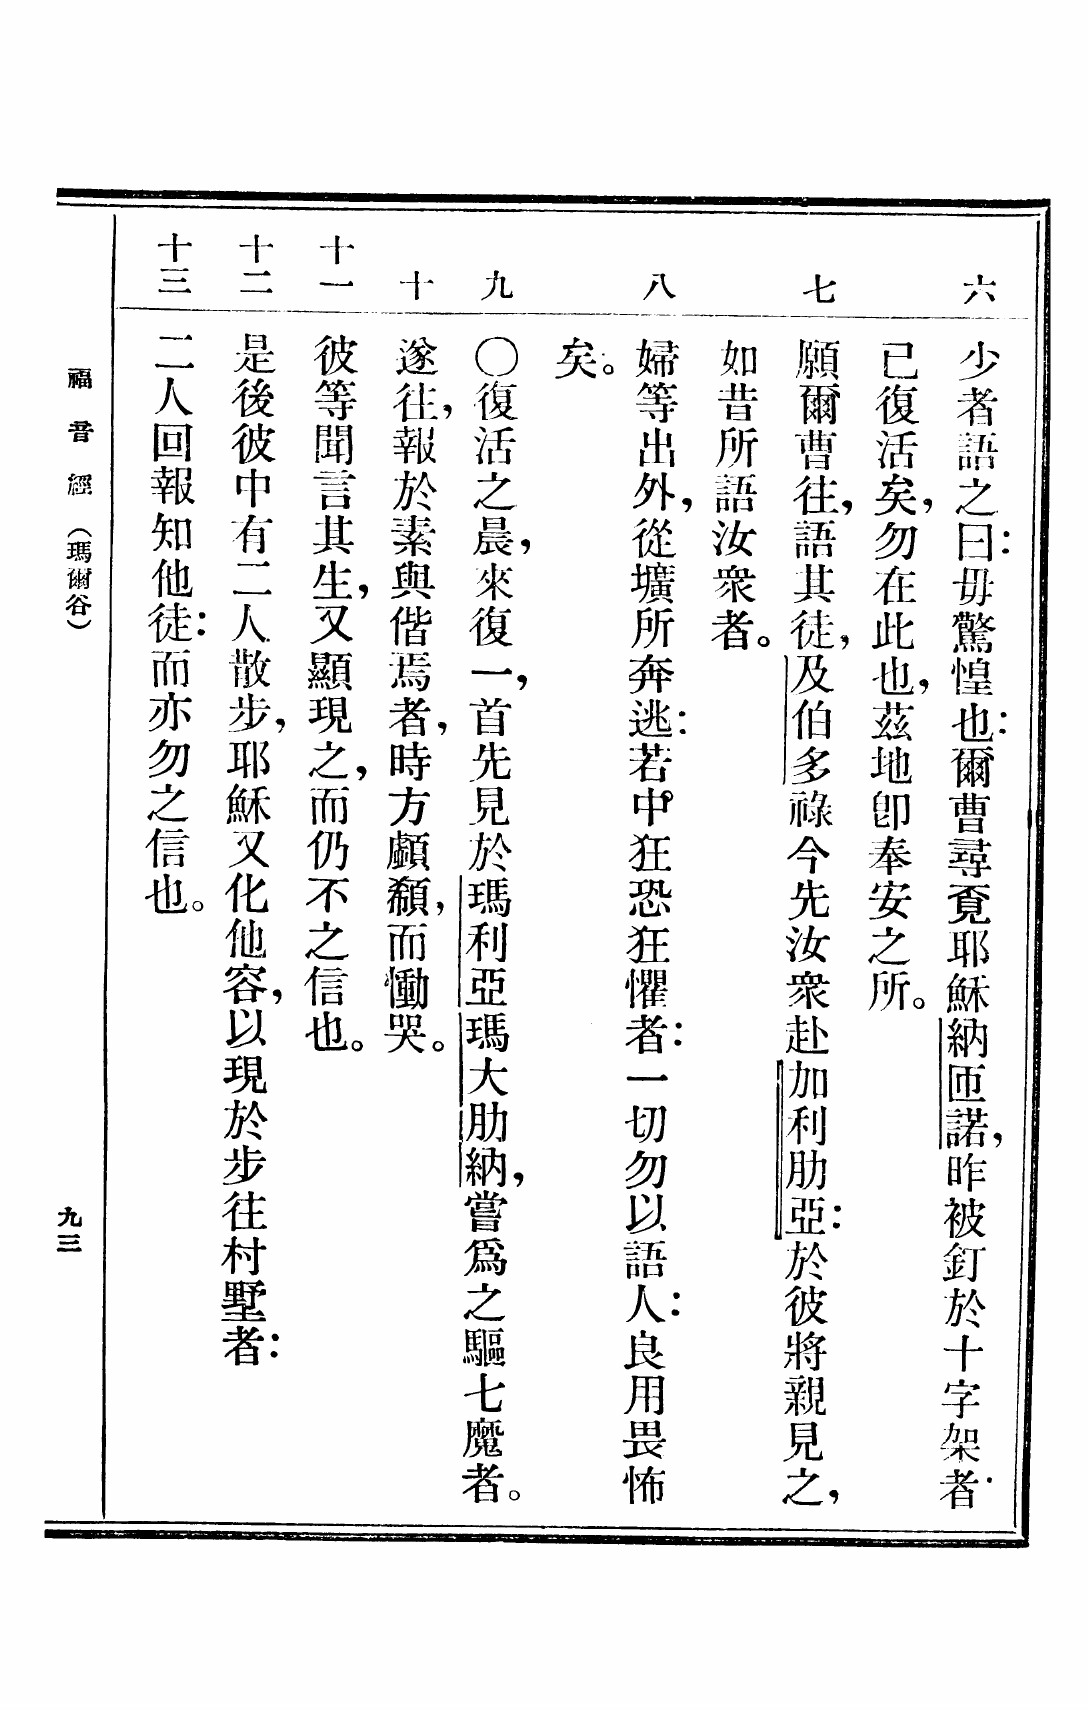 六
少者語之曰：毋驚惶也：爾曹尋覔耶穌納匝諾，昨被釘於十字架者·
已復活矣，勿在此也，茲地卽奉安之所。
七
願爾曹往，語其徒，及伯多祿今先汝衆赴加利肋亞：於彼將親見之，
如昔所語汝衆者。
八
婦等出外，從壙所奔逃：若中狂恐狂懼者：一切勿以語人：良用畏怖
矣。
九
〇復活之晨，來復一，首先見於瑪利亞瑪大肋納，嘗爲之驅七魔者。
十
遂往，報於素與偕焉者，時方顱頮，而慟哭。
十一
彼等聞言其生，又顯現之，而仍不之信也。
十二
是後彼中有二人散步，耶穌又化他容，以現於步往村墅者：
十三
二人回報知他徒：而亦勿之信也。
福音經（瑪爾谷）
九三